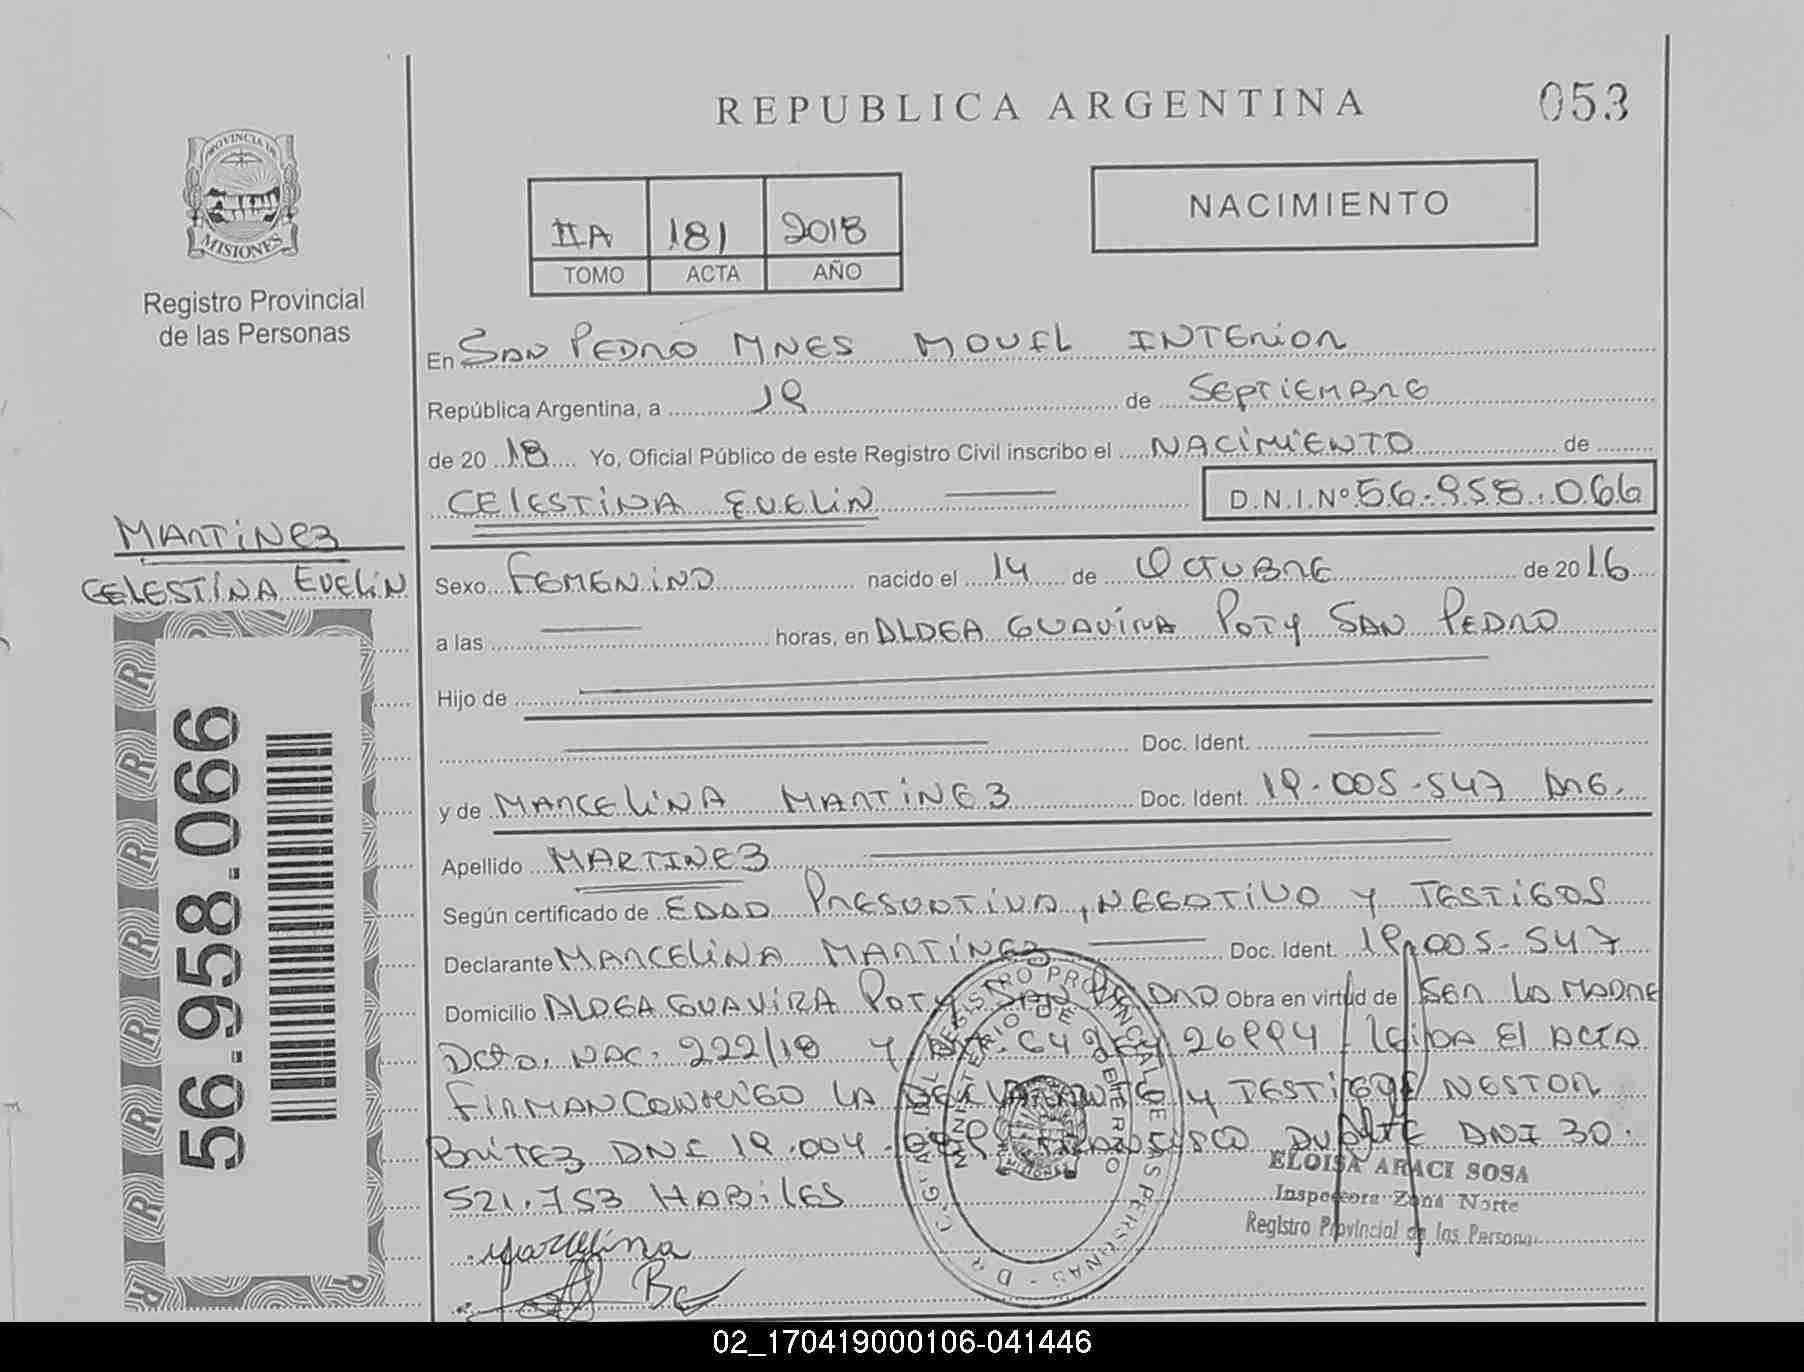 REPUBLICA ARGENTINA
053
PROVINCIA DE
MISIONES
Registro Provincial
de las Personas
IIA 181 2018
TOMO ACTA AÑO
NACIMIENTO
En SAN PEDRO MNES MOVIL INTERIOR
República Argentina, a 19 de SEPTIEMBRE
de 20 18 Yo, Oficial Público de este Registro Civil inscribo el NACIMIENTO de
CELESTINA EVELIN D.N.I.Nº 56.958.066
MARTINEZ
CELESTINA EVELIN
56.958.066
Sexo FEMENINO nacido el 14 de OCTUBRE de 2016
a las horas, en ALDEA GUAVIRA POTY SAN PEDRO
Hijo de
Doc. Ident.
y de MARCELINA MARTINEZ Doc. Ident. 19.005.547 ARG.
Apellido MARTINEZ
Según certificado de EDAD PRESUNTIVA, NEGATIVO Y TESTIGOS
Declarante MARCELINA MARTÍNEZ Doc. Ident. 19.005.547
Domicilio ALDEA GUAVIRA POTY SAN PEDRO Obra en virtud de SER LA MADRE
DCTO. NAC. 222/18 Y LEY 26994 LEIDA EL ACTA
FIRMAN CONMIGO LA DECLARANTE Y TESTIGOS NESTOR
BRITEZ DNI 19.004. DUARTE DNI 30.
521.753 HABILES
REGISTRO PROVINCIAL DE LAS PERSONAS
MINISTERIO DE GOBIERNO
MISIONES
ELOISA ARACI SOSA
Inspectora Zona Norte
Registro Provincial de las Personas
Marcelina
02_170419000106-041446